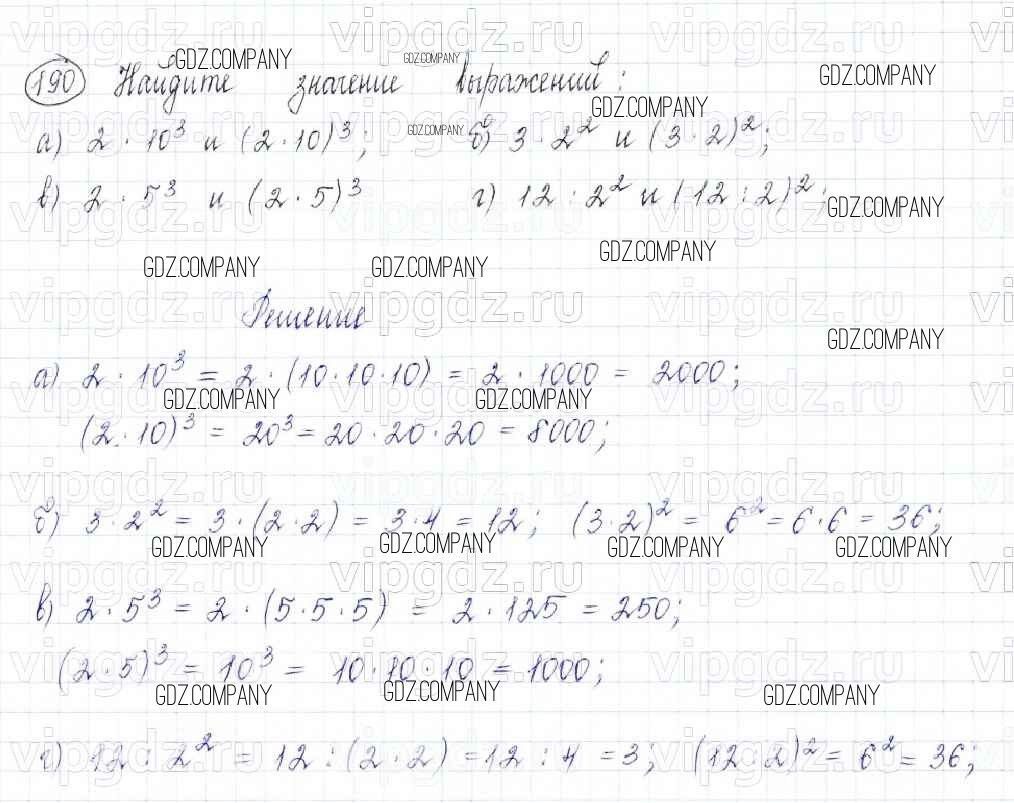 190 Найдите значение выражений:
а) 2 · 10³ и (2 · 10)³; б) 3 · 2² и (3 · 2)²;
в) 2 · 5³ и (2 · 5)³ г) 12 : 2² и (12 : 2)²;
Решение
а) 2 · 10³ = 2 · (10 · 10 · 10) = 2 · 1000 = 2000;
(2 · 10)³ = 20³ = 20 · 20 · 20 = 8000;
б) 3 · 2² = 3 · (2 · 2) = 3 · 4 = 12; (3 · 2)² = 6² = 6 · 6 = 36;
в) 2 · 5³ = 2 · (5 · 5 · 5) = 2 · 125 = 250;
(2 · 5)³ = 10³ = 10 · 10 · 10 = 1000;
г) 12 : 2² = 12 : (2 · 2) = 12 : 4 = 3; (12 : 2)² = 6² = 36;
GDZ.COMPANY
vipgdz.ru